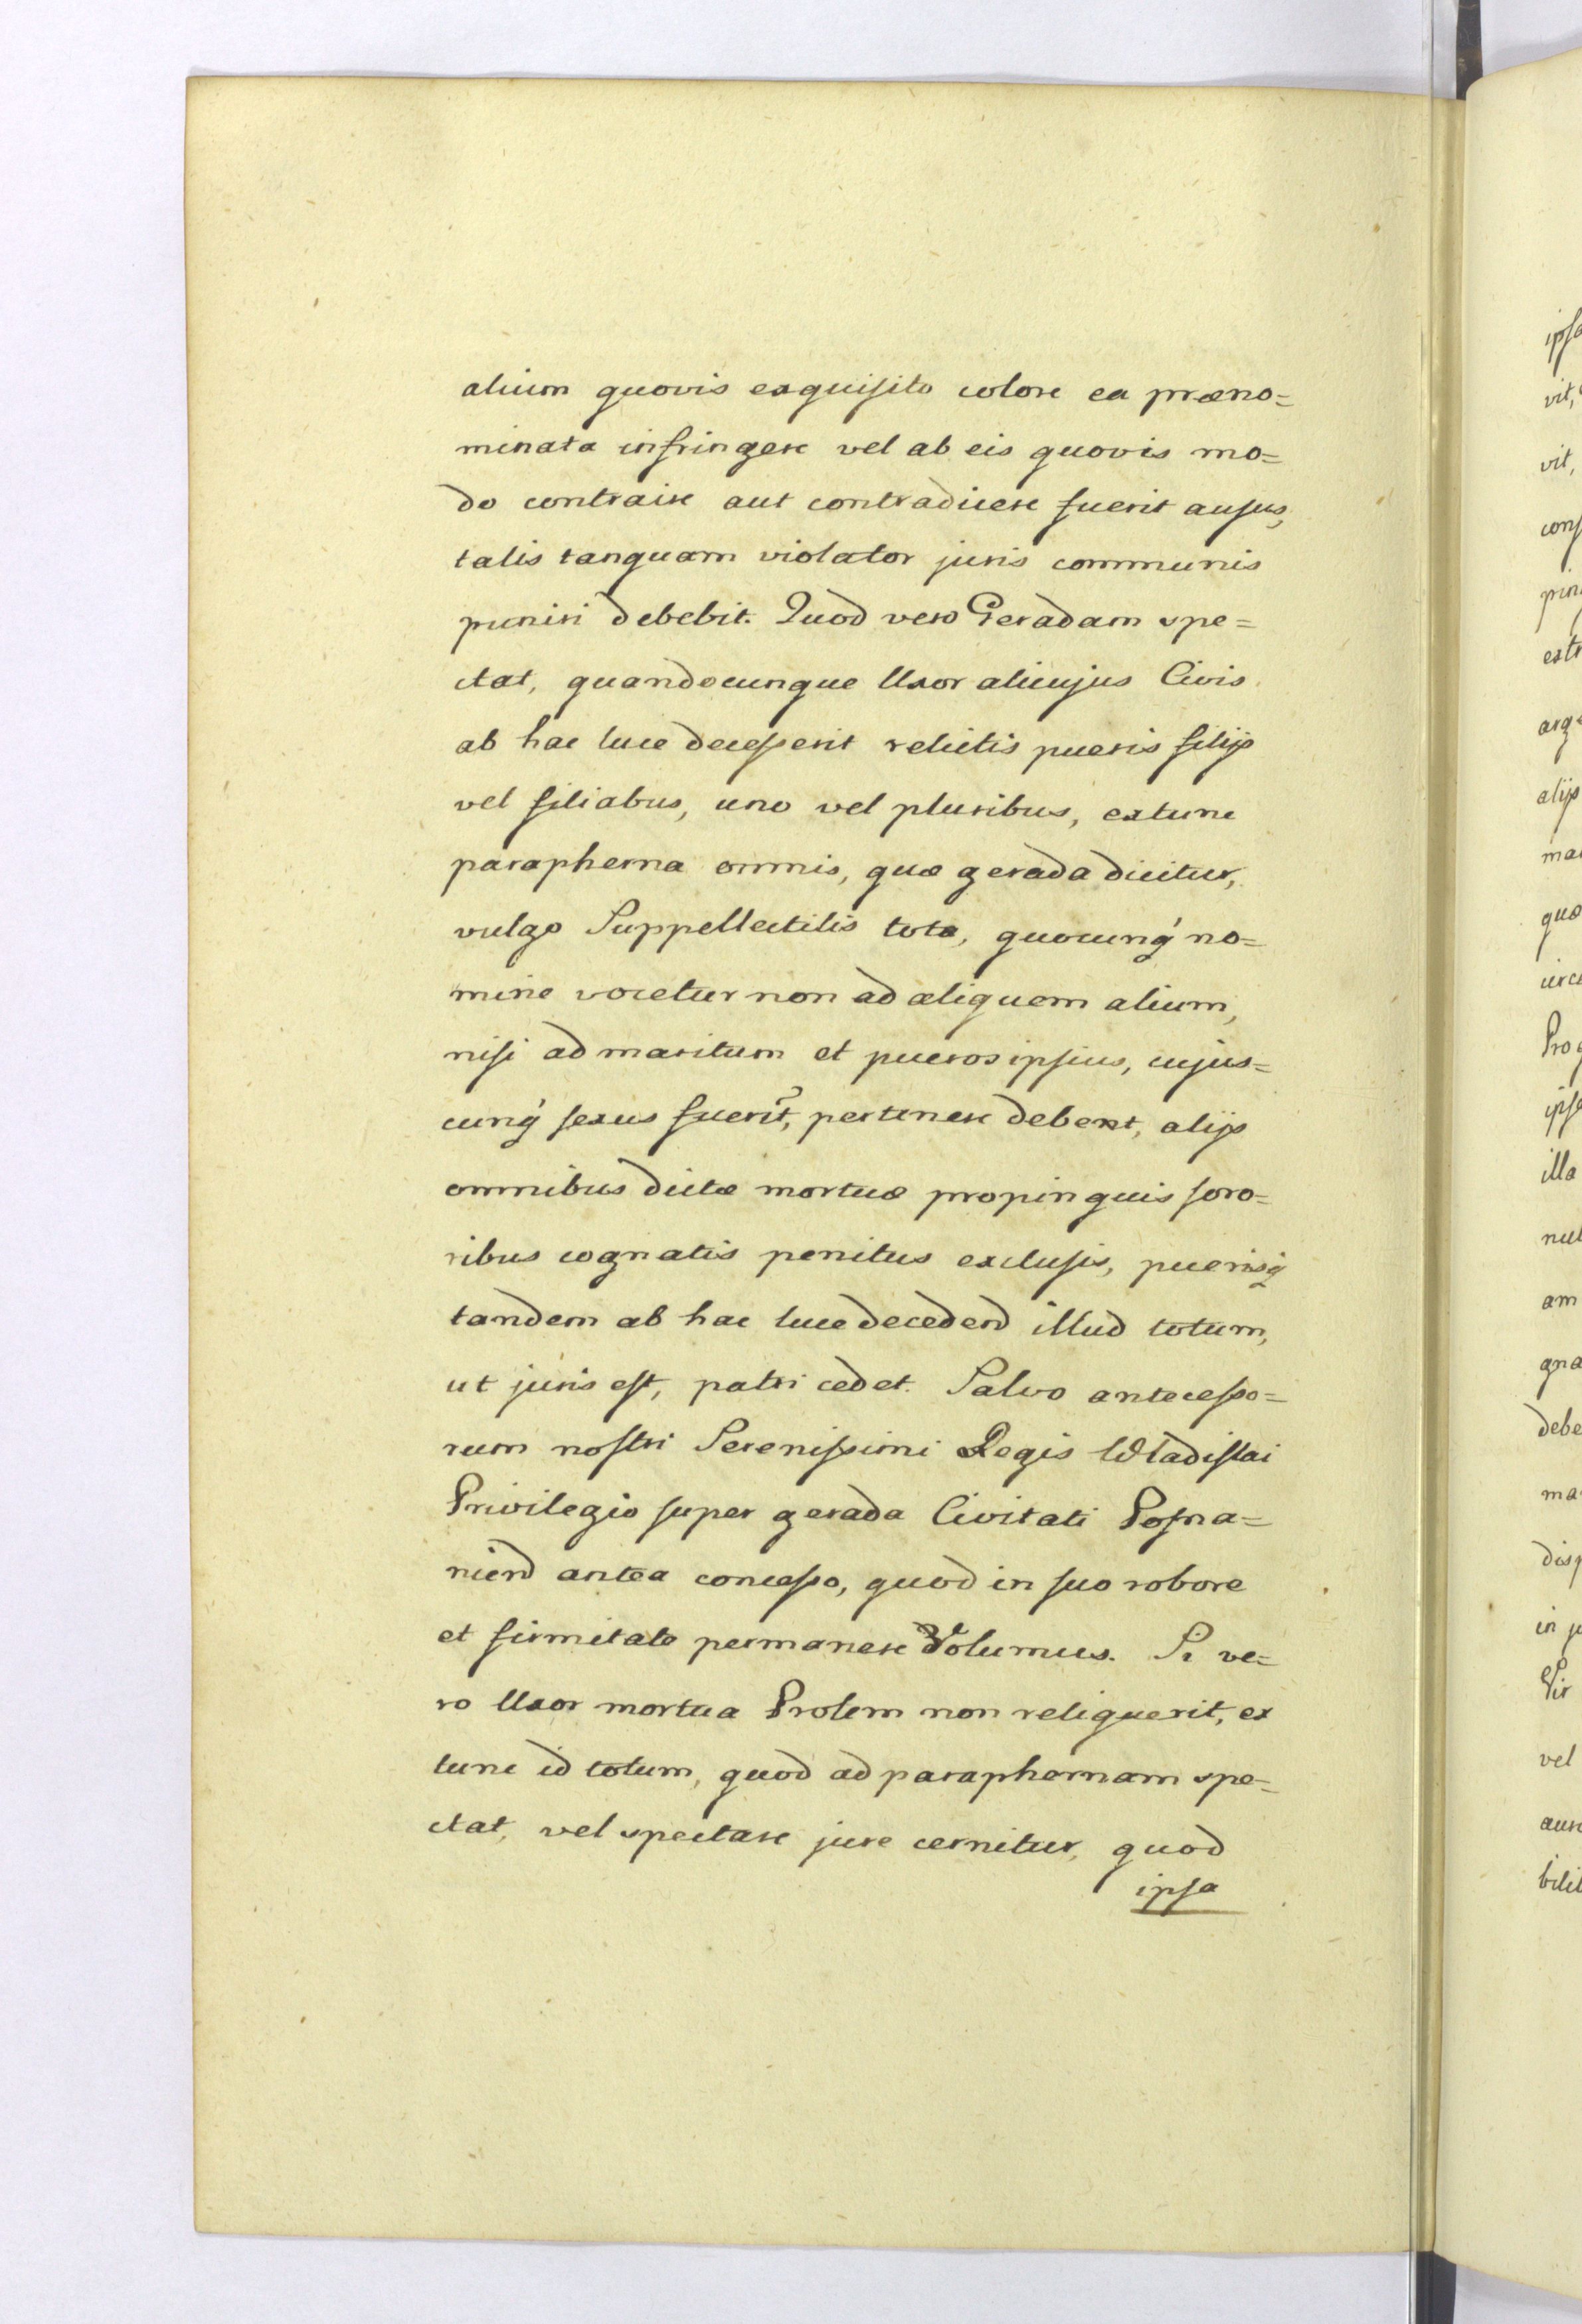 alium quovis exquisito colore ea præno=
minata infringere vel ab eis quovis mo=
do contraire aut contradicere fuerit ausus,
talis tanquam violator juris communis
puniri debebit. Quod vero Geradam spe=
ctat, quandocunque Uxor alicujus Civis
ab hac luce decesserit relictis pueris filijs
vel filiabus, uno vel pluribus, extunc
parapherna omnis, quæ gerada dicitur,
vulgo Suppellectilis tota, quocunq́ no=
mine vocetur non ad aliquem alium,
nisi ad maritum et pueros ipsius, cujus=
cunq́ sexus fuerit, pertinere debent, alijs
omnibus dictæ mortuæ propinquis soro=
ribus cognatis penitus exclusis, puerisq́
tandem ab hac luce deceden illud totum,
ut juris est, patri cedet. Salvo antecesso=
rum nostri Serenissimi Regis Wladislai
Privilegio super gerada Civitati Posna=
nien antea concesso, quod in suo robore
et firmitate permanere Volumus. Si ve=
ro Uxor mortua Prolem non reliquerit, ex
tunc id totum, quod ad paraphernam spe=
ctat, vel spectare jure cernitur, quod
ipsa